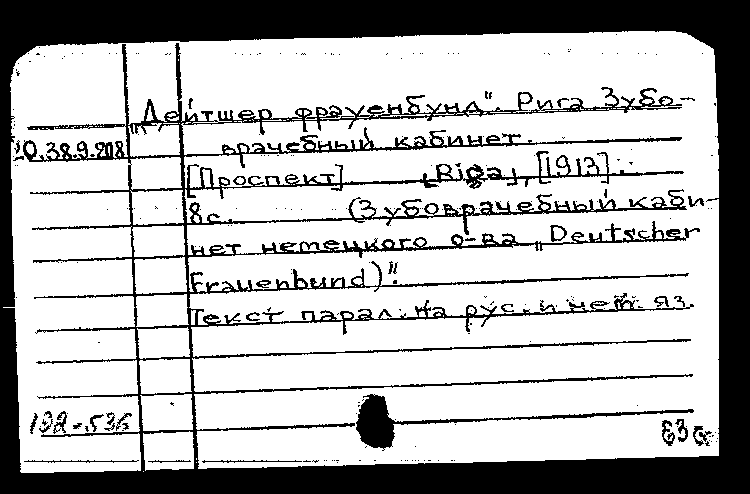 „Дейтшер фрауенбунд". Рига. Зубо-
20.38.9.208 врачебный кабинет.
[Проспект] „Riga„, [1913].
8с. (Зубоврачебный каби-
нет немецкого о-ва „Deutscher
Frauenbund)".
Текст парал. на рус. и нем. яз.
192-536